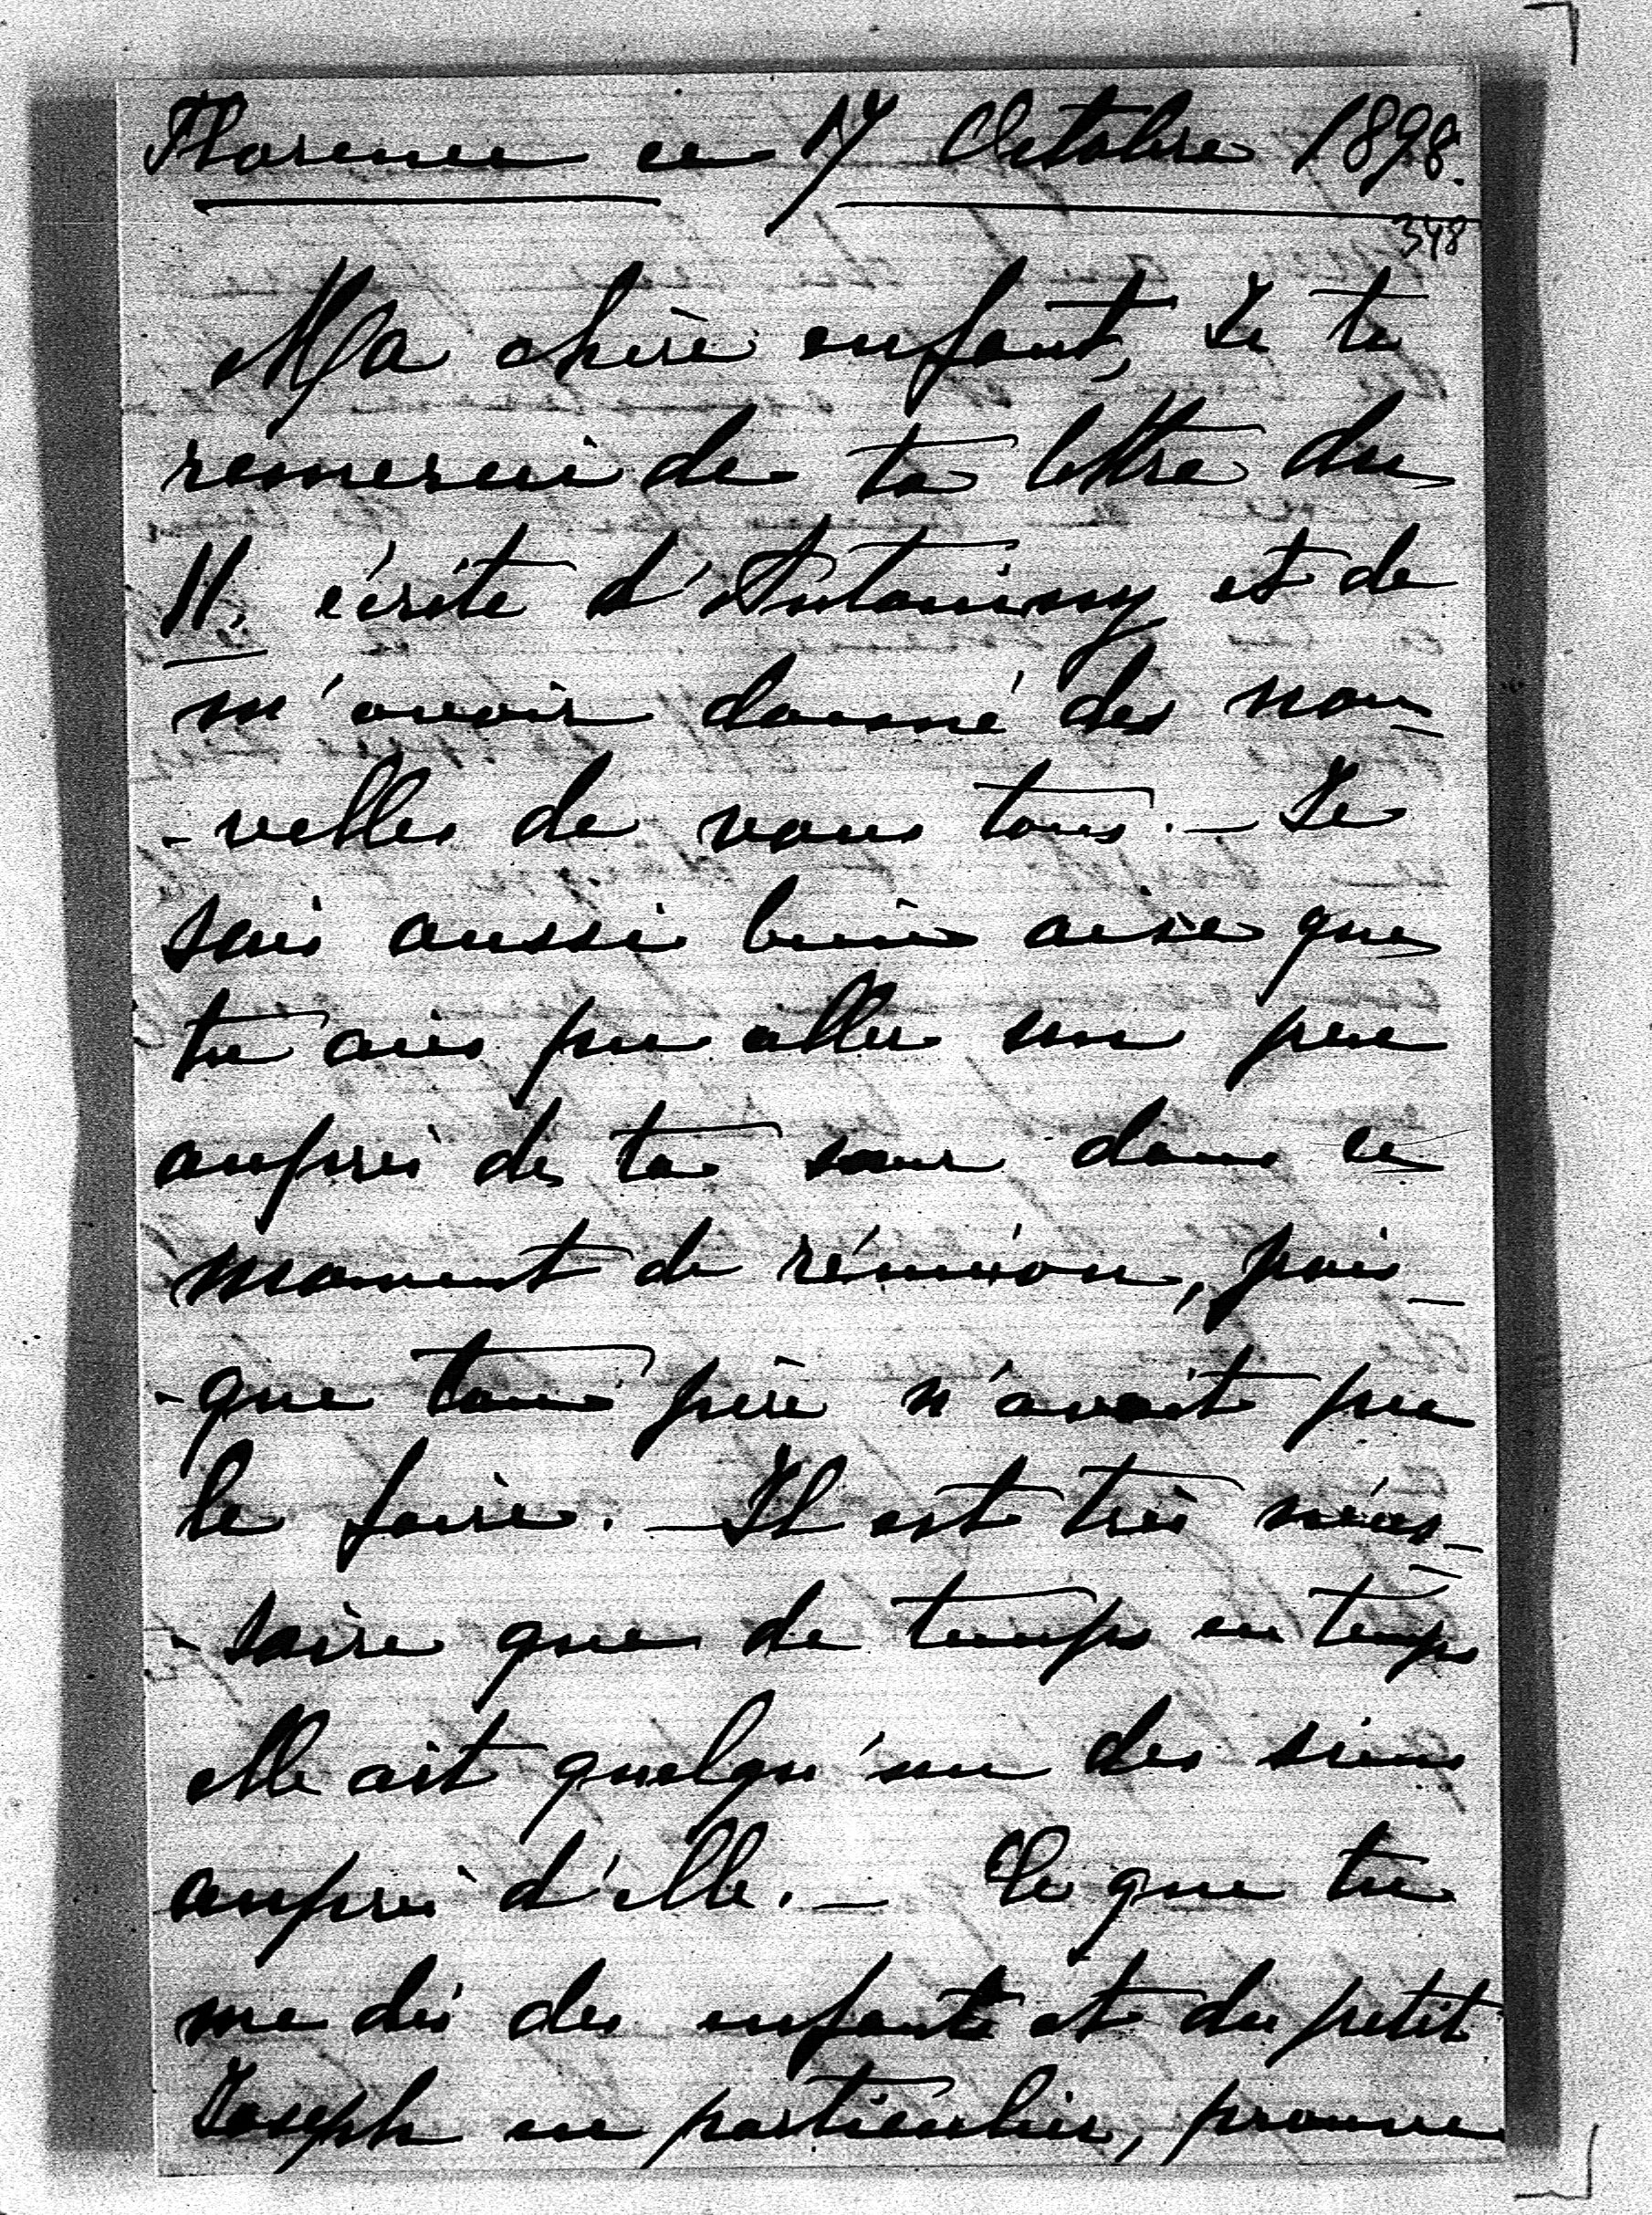 Florence ce 17 Octobre 1898.
348
Ma chère enfant, Je te
remercie de ta lettre du
11, écrite d'Antoniny et de
m'avoir donné des nou-
-velles de vous tous. — Je
suis aussi bien aise que
tu aies pu aller un peu
auprès de ta sœur dans ce
moment de réunion, puis-
-que ton père n'avait pu
le faire. — Il est très néces-
-saire que de temps en temps
elle ait quelqu'un des siens
auprès d'elle. — Ce que tu
me dis des enfants et du petit
Joseph en particulier, prouve